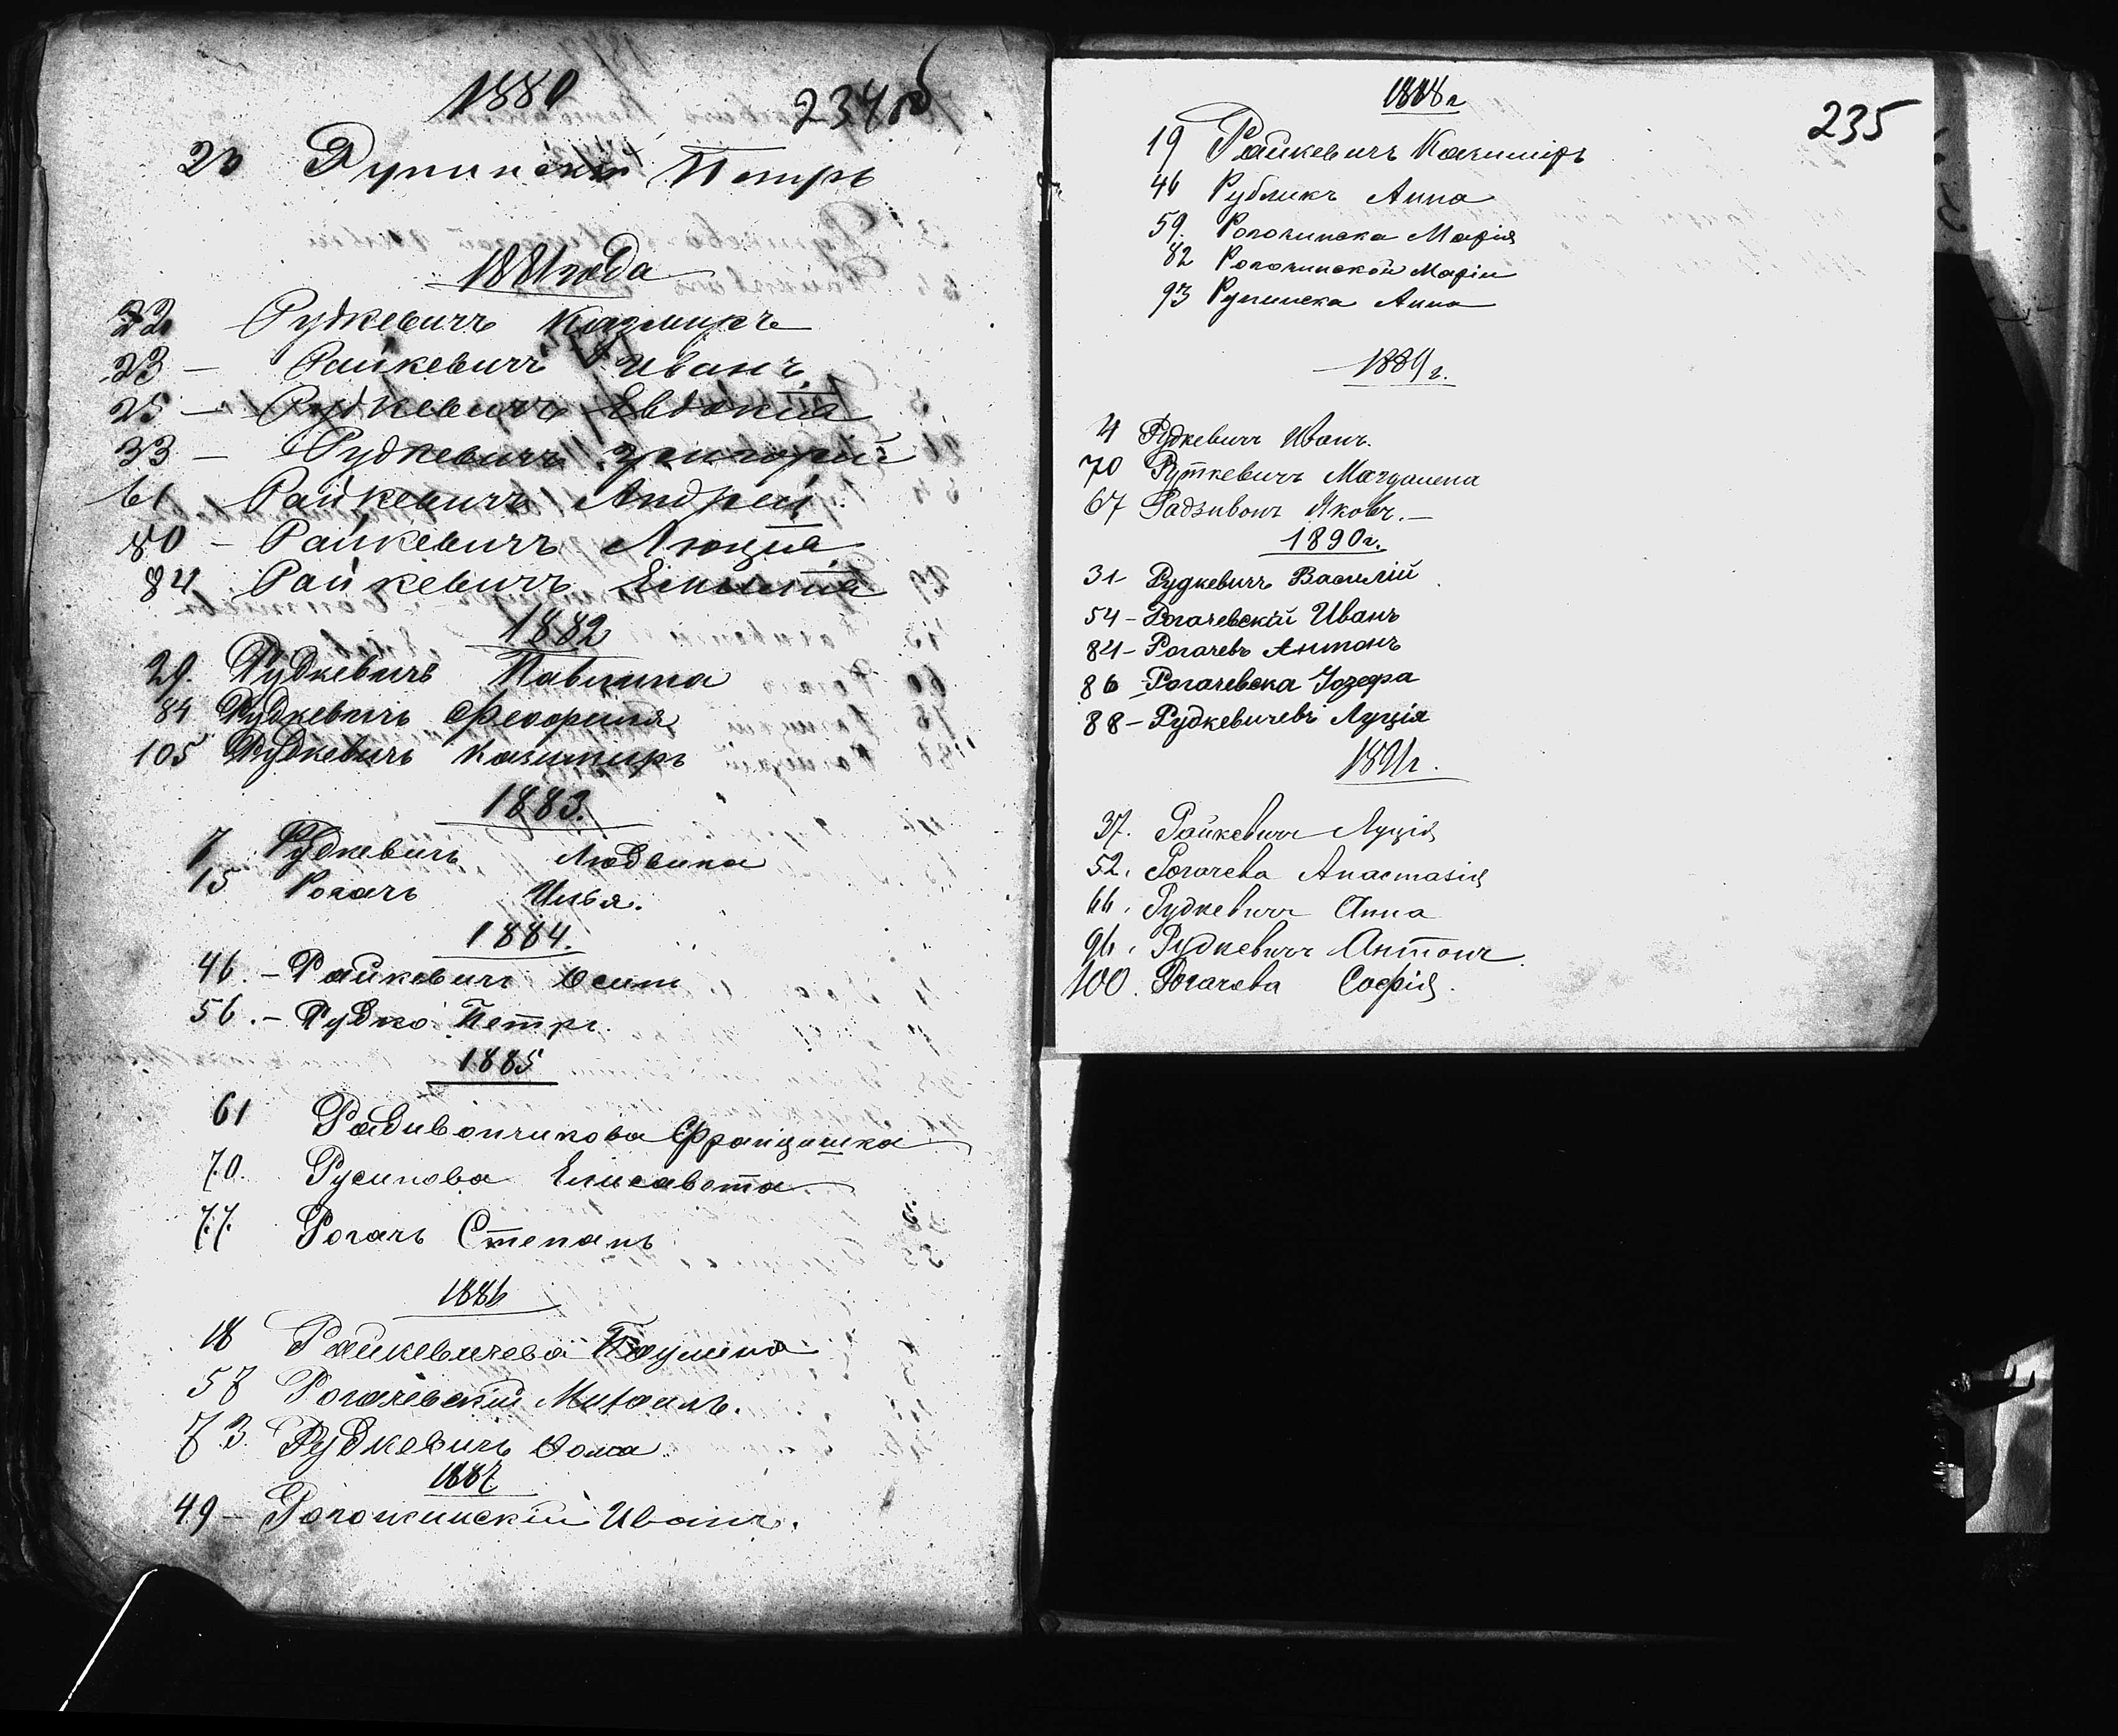 1880
234об
20 Рупинскі Петръ
1881 года
22 Рудкевичъ Казмиръ
23 — Райкевичъ Иванъ
25 — Рудкевичъ Евдокія
33 — Рудкевичъ Григорій
61 Райкевичъ Андрей
80 — Райкевичъ Люція
84 Райкевичъ Емилія
1882
29. Рудкевичъ Павлина
84 Рудкевичъ
105 Рудкевичъ Казимиръ
1883.
7 Рудкевичъ Людвика
15 Рогачъ Илья.
1884.
46. — Райкевичъ Осип
56. — Рудко Петръ.
1885
61 Радивончикова Францишка
70. Русинова Елисавета
77. Рогачъ Степанъ
1886
18 Райкевичева Паулина
57 Рогачевскій Михаилъ.
73. Рудкевичъ Ѳома.
1887
49 — Рогожинскій Иванъ.
1888 г
235
19 Райкевичъ Казимиръ
46 Рубликъ Анна
59. Рогочинска Марія
82 Рогочинской Маріи
93 Рупинска Анна
1889 г.
4 Рудкевичъ Иванъ.
70 Руткевичъ Магдалена
67 Радзивонъ Яковъ. —
1890 г.
31 Рудкевичъ Василій
54 — Рогачевскій Иванъ
84 — Рогачевъ Антонъ
86 Рогачевска Іозефа
88 — Рудкевичевъ Луція
1891 г.
37. Райкевичъ Луція
52. Рогачева Анастазія
66. Рудкевичъ Анна
96. Рудкевичъ Антонъ.
100. Рогачева Софія.